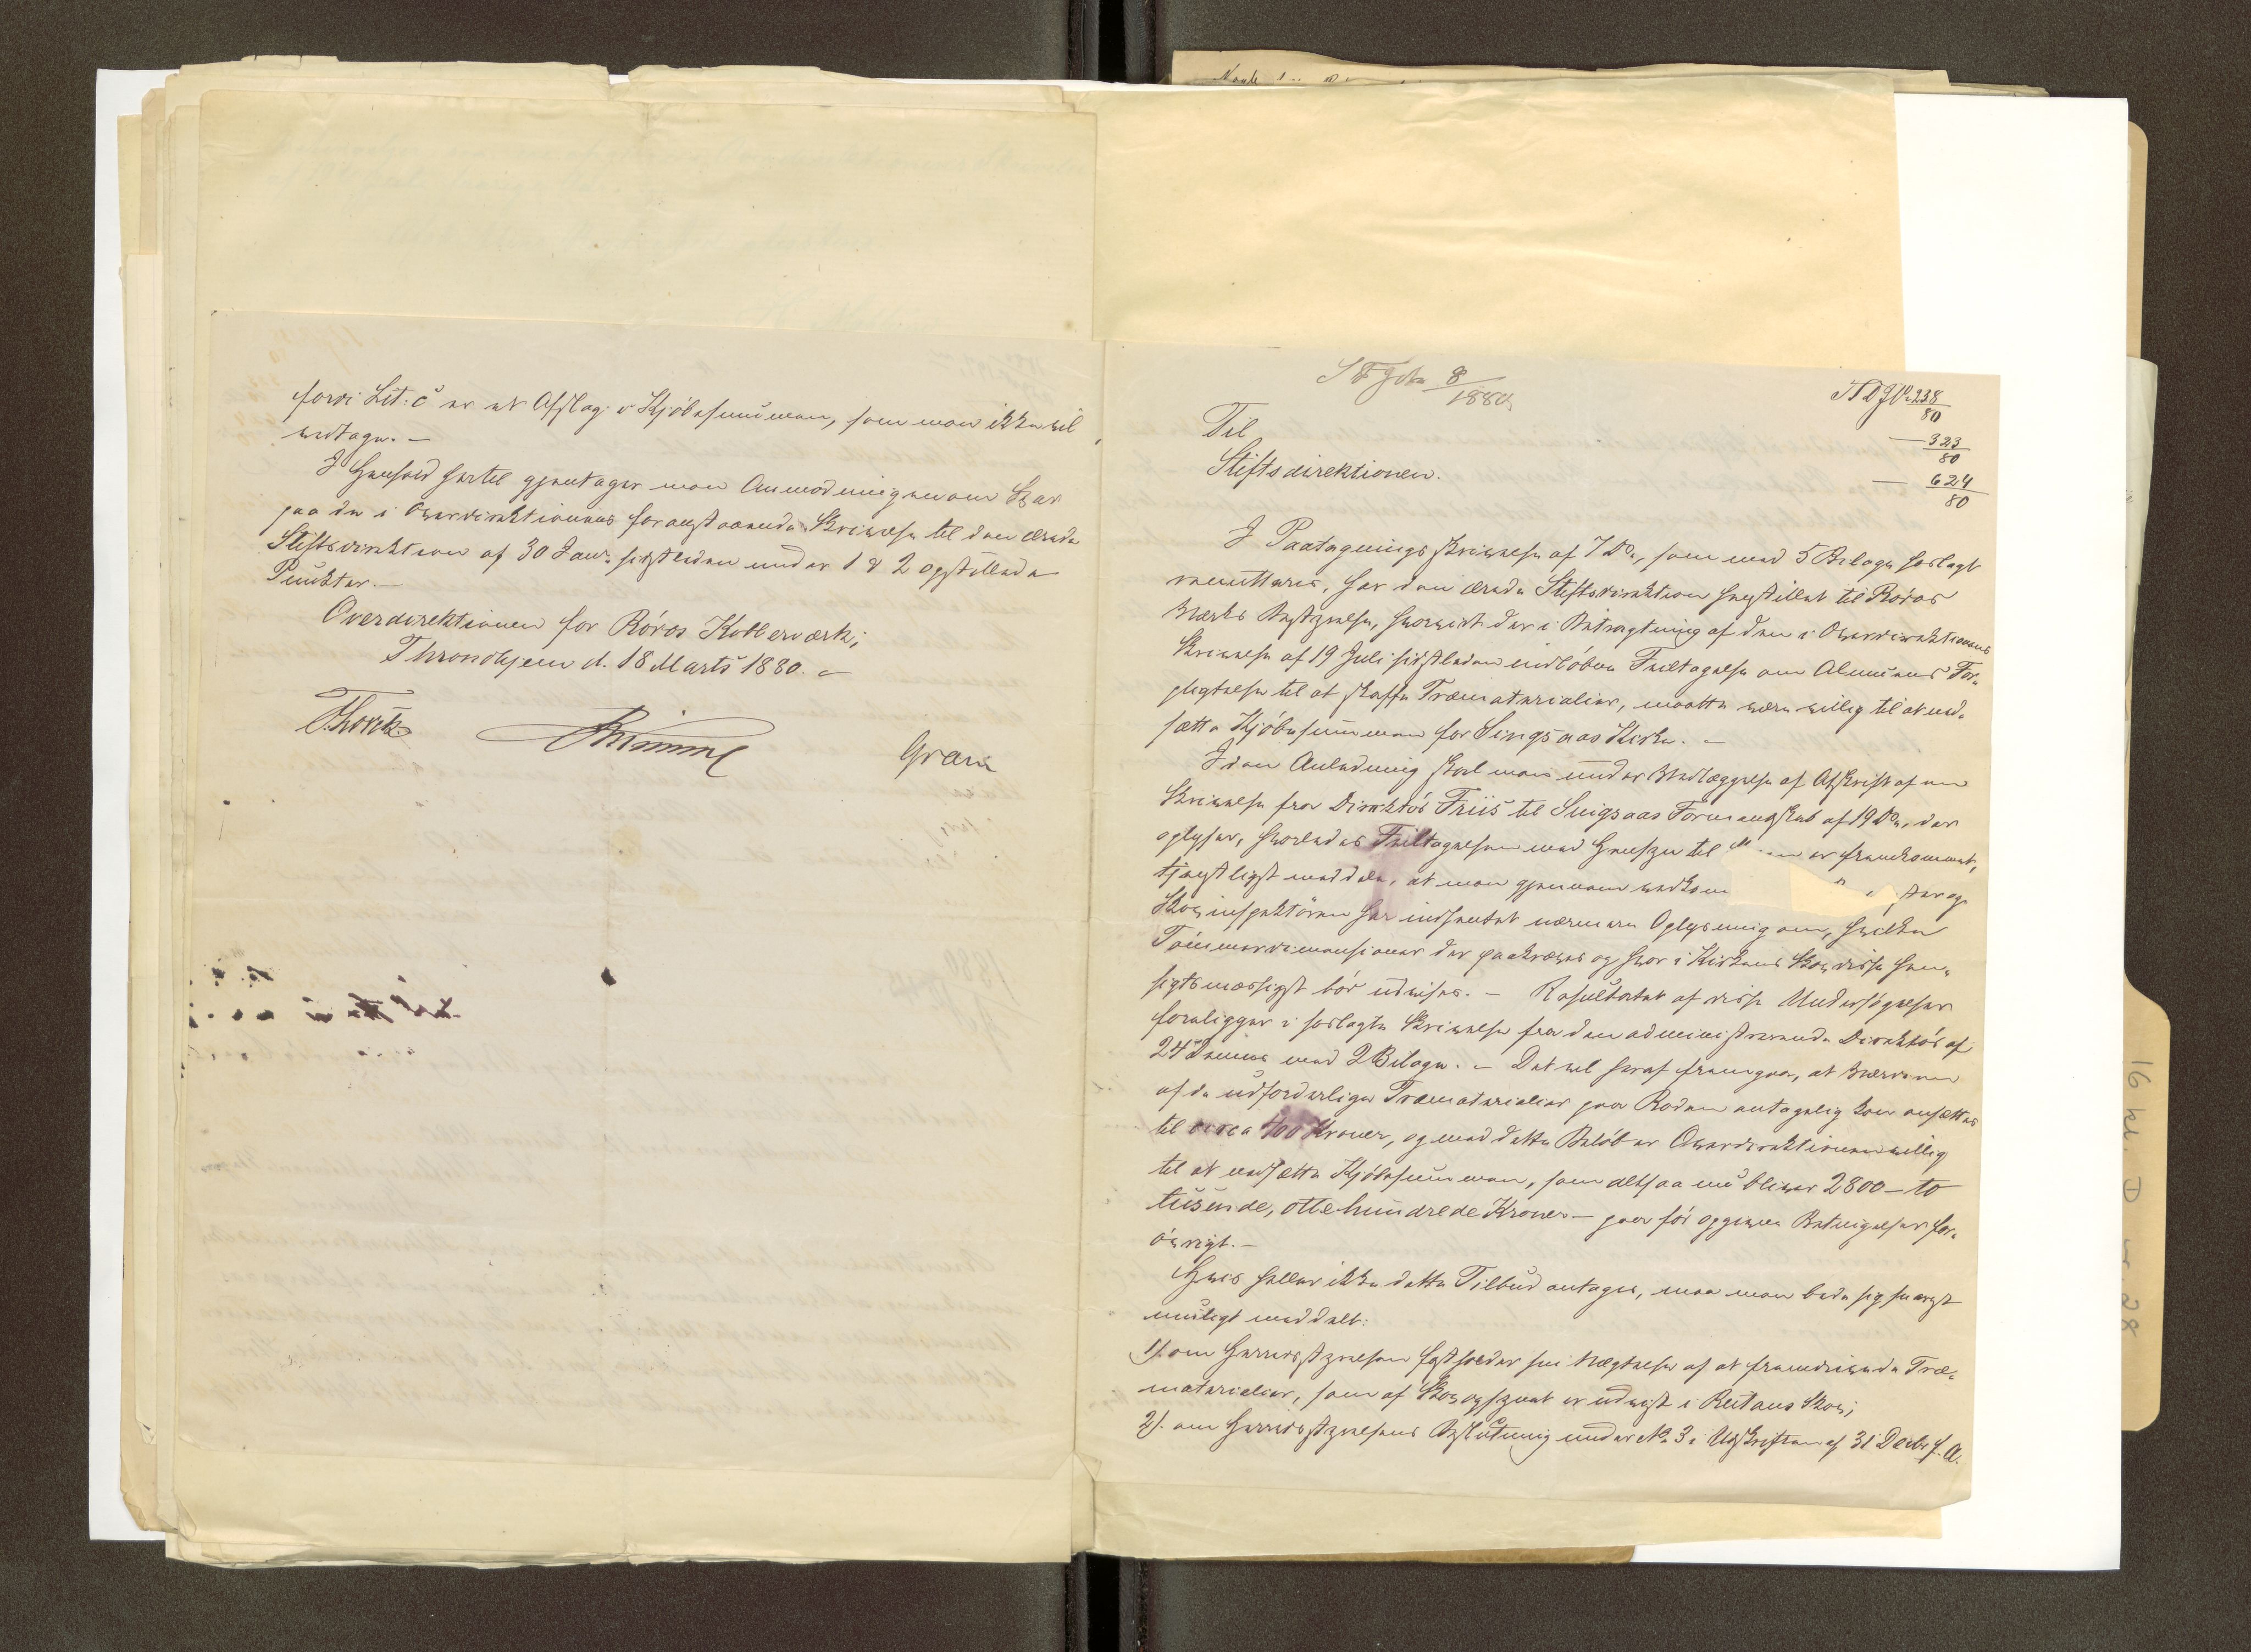 fordi Lit: C er et Afslag i Kjöbesummen, som man ikke vil
vedtage. –
I Henhold hertil gjentager man Anmodningen om Svar
paa de i Overdirektionens foranstaaende Skrivelse til den ærede
Stiftsdirektion af 30 Janr. sidstleden under 1 & 2 opstillede
Punkter. –
Overdirektionen for Röros Kobberværk;
Throndhjem d. 18 Marts 1880.
Gram
8
1880
238
80
Til
323
80
Stiftsdirektionen.
624
80
I Paategningsskrivelse af 7 Ds, som med 5 Bilage hoslagt
remitteres, har den ærede Stiftsdirektion henstillet til Röros
Værks Bestyrelse, hvorvidt der i Betragtning af den i Overdirektionens
Skrivelse af 19 Juli sidstleden indlöbne Feiltagelse om Almuens For-
pligtelse til at skaffe Træmaterialier, maatte være villig til at ned-
sætte Kjöbesummen for Singsaas Kirke. –
I den Anledning skal man under Vedlæggelse af Afskrift af en
Skrivelse fra Direktör Friis til Singsaas Formandskab af 19 Ds, der
oplyser, hvorledes Feiltagelsen med Hensyn til er fremkommet,
tjenstligst meddele, at man gjennem vedkom ster og
Skovinspektören har indhentet nærmere Oplysning om, hvilke
Tömmerdimensioner der paakræves og hvor i Kirkens Skov disse hen-
sigtsmæssigst bör udvises. – Resultatet af disse Undersögelser
foreligger i hoslagte Skrivelse fra den administrerende Direktör af
24 dennes med 2 Bilage. – Det vil heraf fremgaa, at Værdien
af de udfordrlige Træmaterialier paa Roden antagelig kan ansættes
til circa 400 Kroner, og med dette Belöb er Overdirektionen villig
til at nedsætte Kjöbesummen, som altsaa nu bliver 2800 – to
tusinde, otte hundrede Kroner – paa för opgivne Betingelser for-
övrigt. –
Hvis heller ikke dette Tilbud antages, maa man bede sig snarest
muligt meddelt:
1). om Herredsstyrelsen fastholder sin Vægtelse af at fremdrive de Træ-
materialier, som af Skovopsynet er udvist i Reitans Skov;
2). om Herredsstyrelsens Beslutning under No 3 i Udskriften af 31 Decbr f. A.